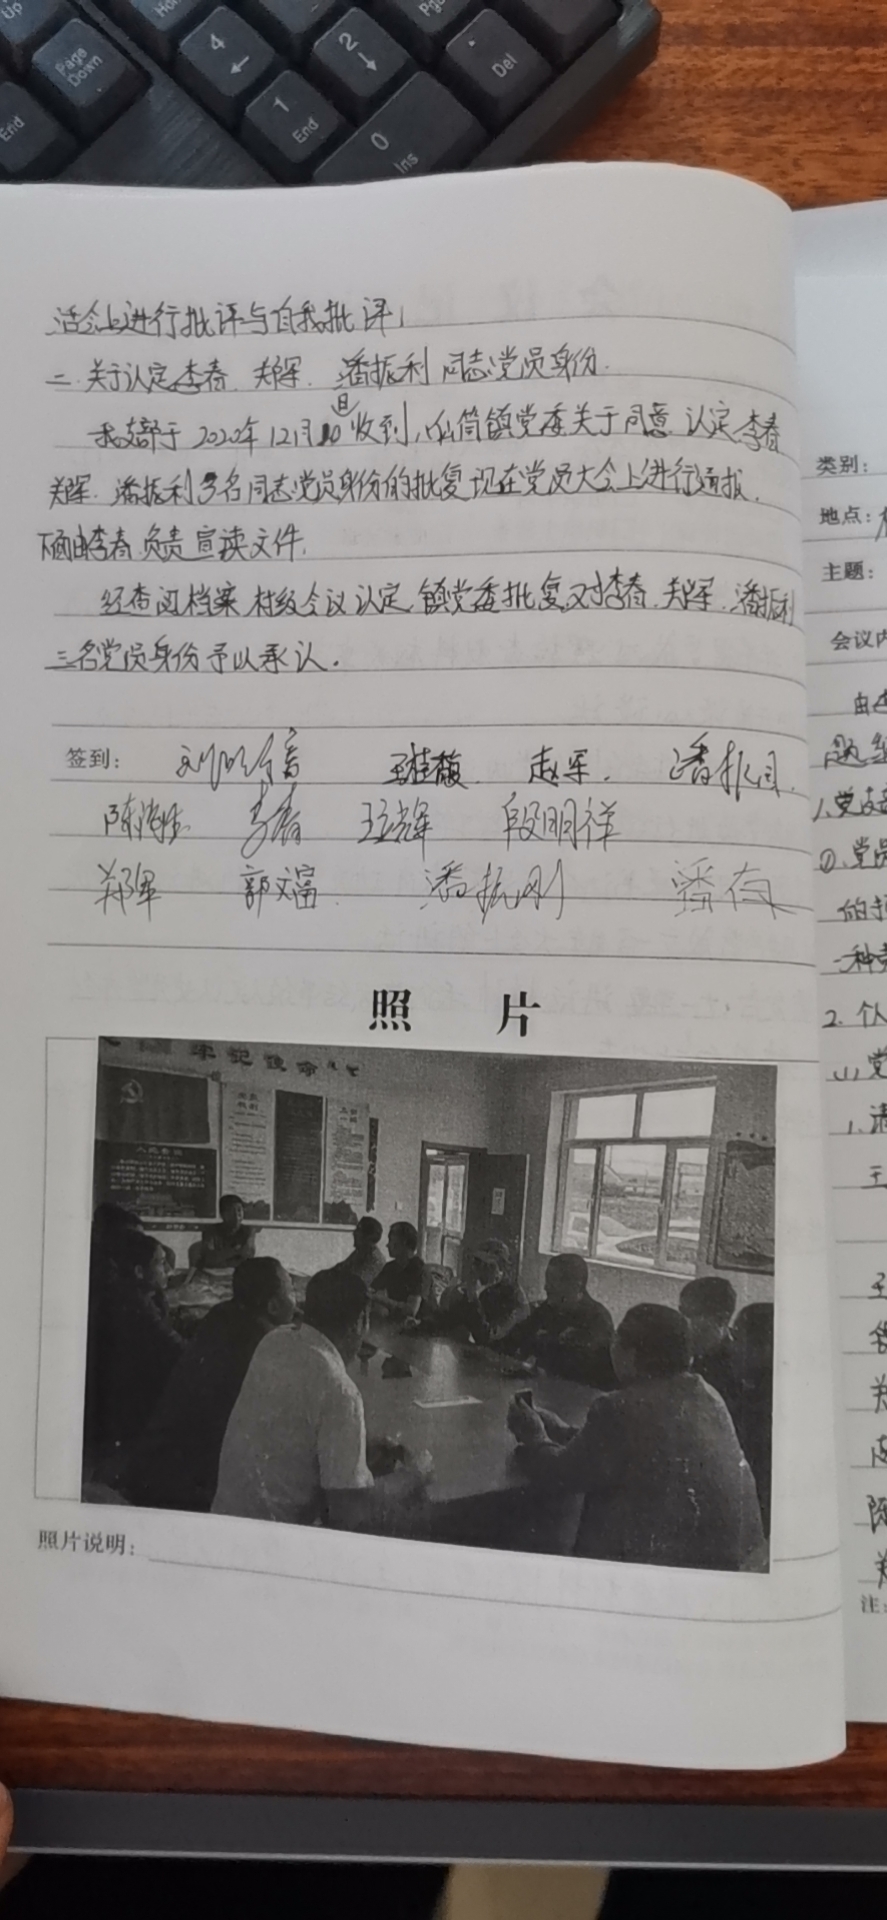 Up
Page Down
End
4
2
1
End
0
Ins
Del
活会上进行批评与自我批评；
二.关于认定李春.郑军.潘振利同志党员身份.
我支部于2020年12月10日收到,八仙筒镇党委关于同意认定李春
郑军.潘振利3名同志党员身份的批复现在党员大会上进行通报.
下面由李春负责宣读文件.
经查阅档案,村级会议认定,镇党委批复,对李春.郑军.潘振利
三名党员身份予以承认.
签到： 王桂馥. 赵军.
李春 段明祥
郑军 郭文富. 潘振刚
照 片
牢记使命
照片说明：
类别：
地点：
主题：
会议内
1.党支部
①.党员
的
一种
2.个人
党
1.
王
陈
郑
注：